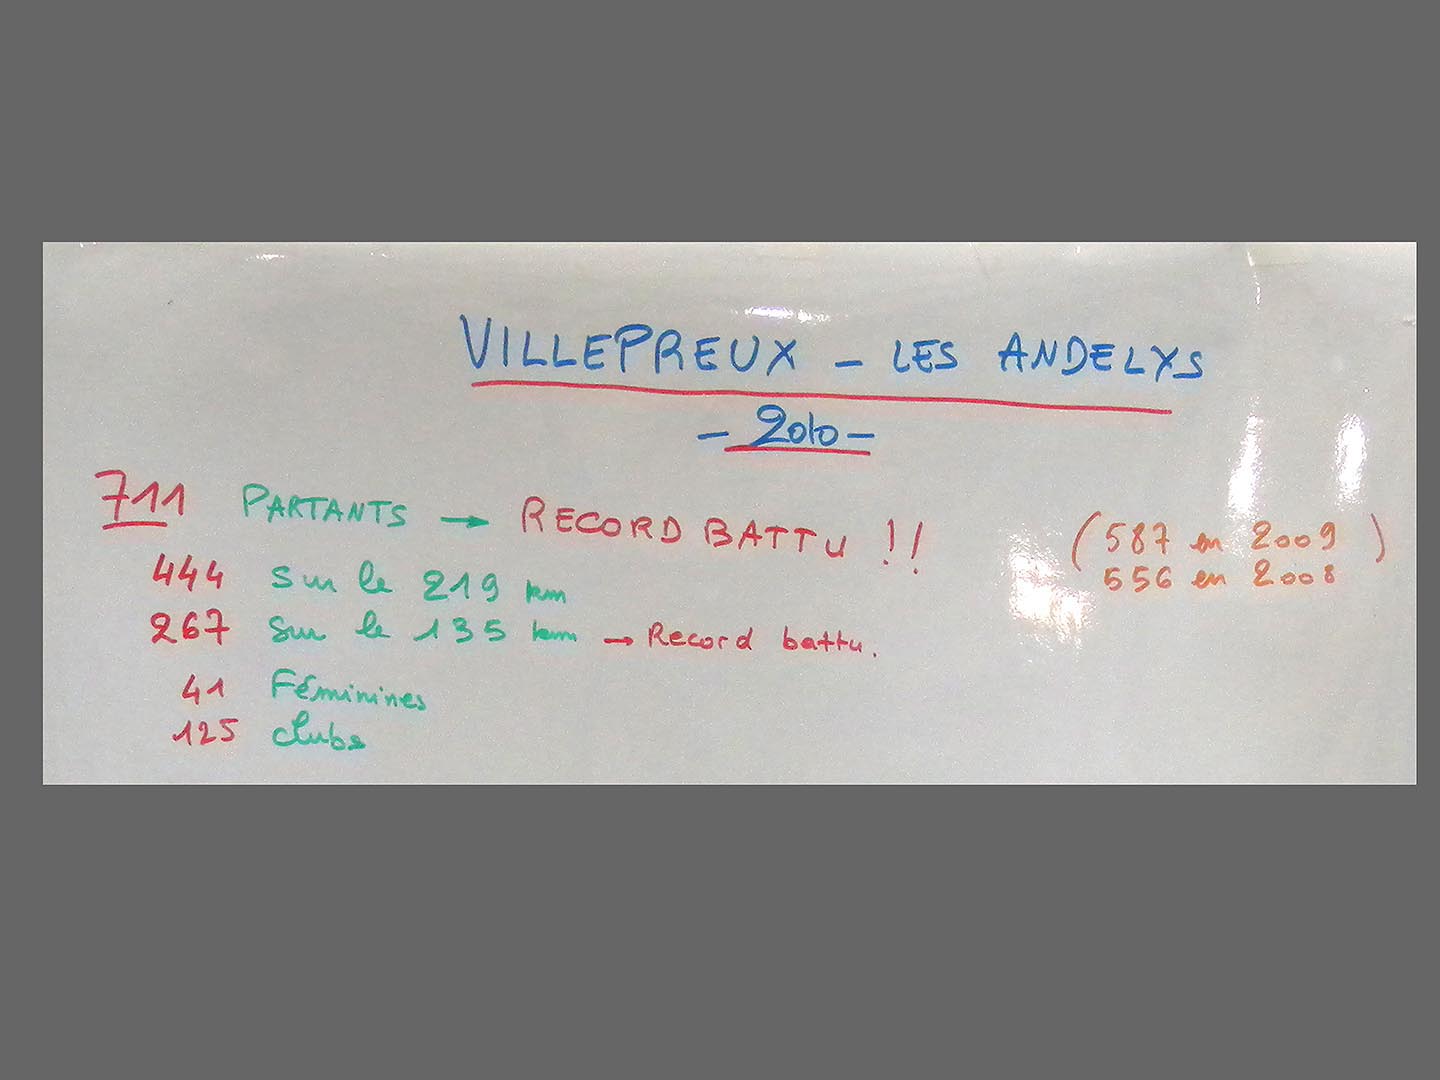 VILLEPREUX - LES ANDELYS
- 2010 -
711 PARTANTS → RECORD BATTU !! (587 en 2009)
444 sur le 219 km 556 en 2008
267 sur le 135 km → Record battu.
41 Féminines
125 clubs